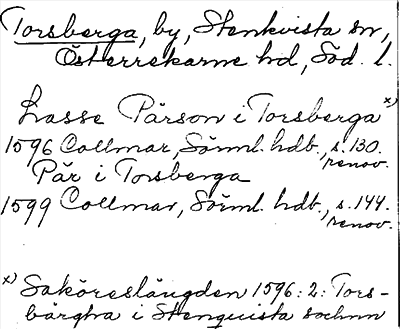 Torsberga, by, Stenkvista sn,
Österrekarne hd, Söd. l.
Lasse Pärson i Torsberga x)
1596 Collmar, Sörml. hdb., s. 130.
renov.
Pär i Torsberga
1599 Collmar, Sörml. hdb., s. 144.
renov.
x) Saköreslängden 1596:2: Tors-
bärgha i Stenquista sochnn